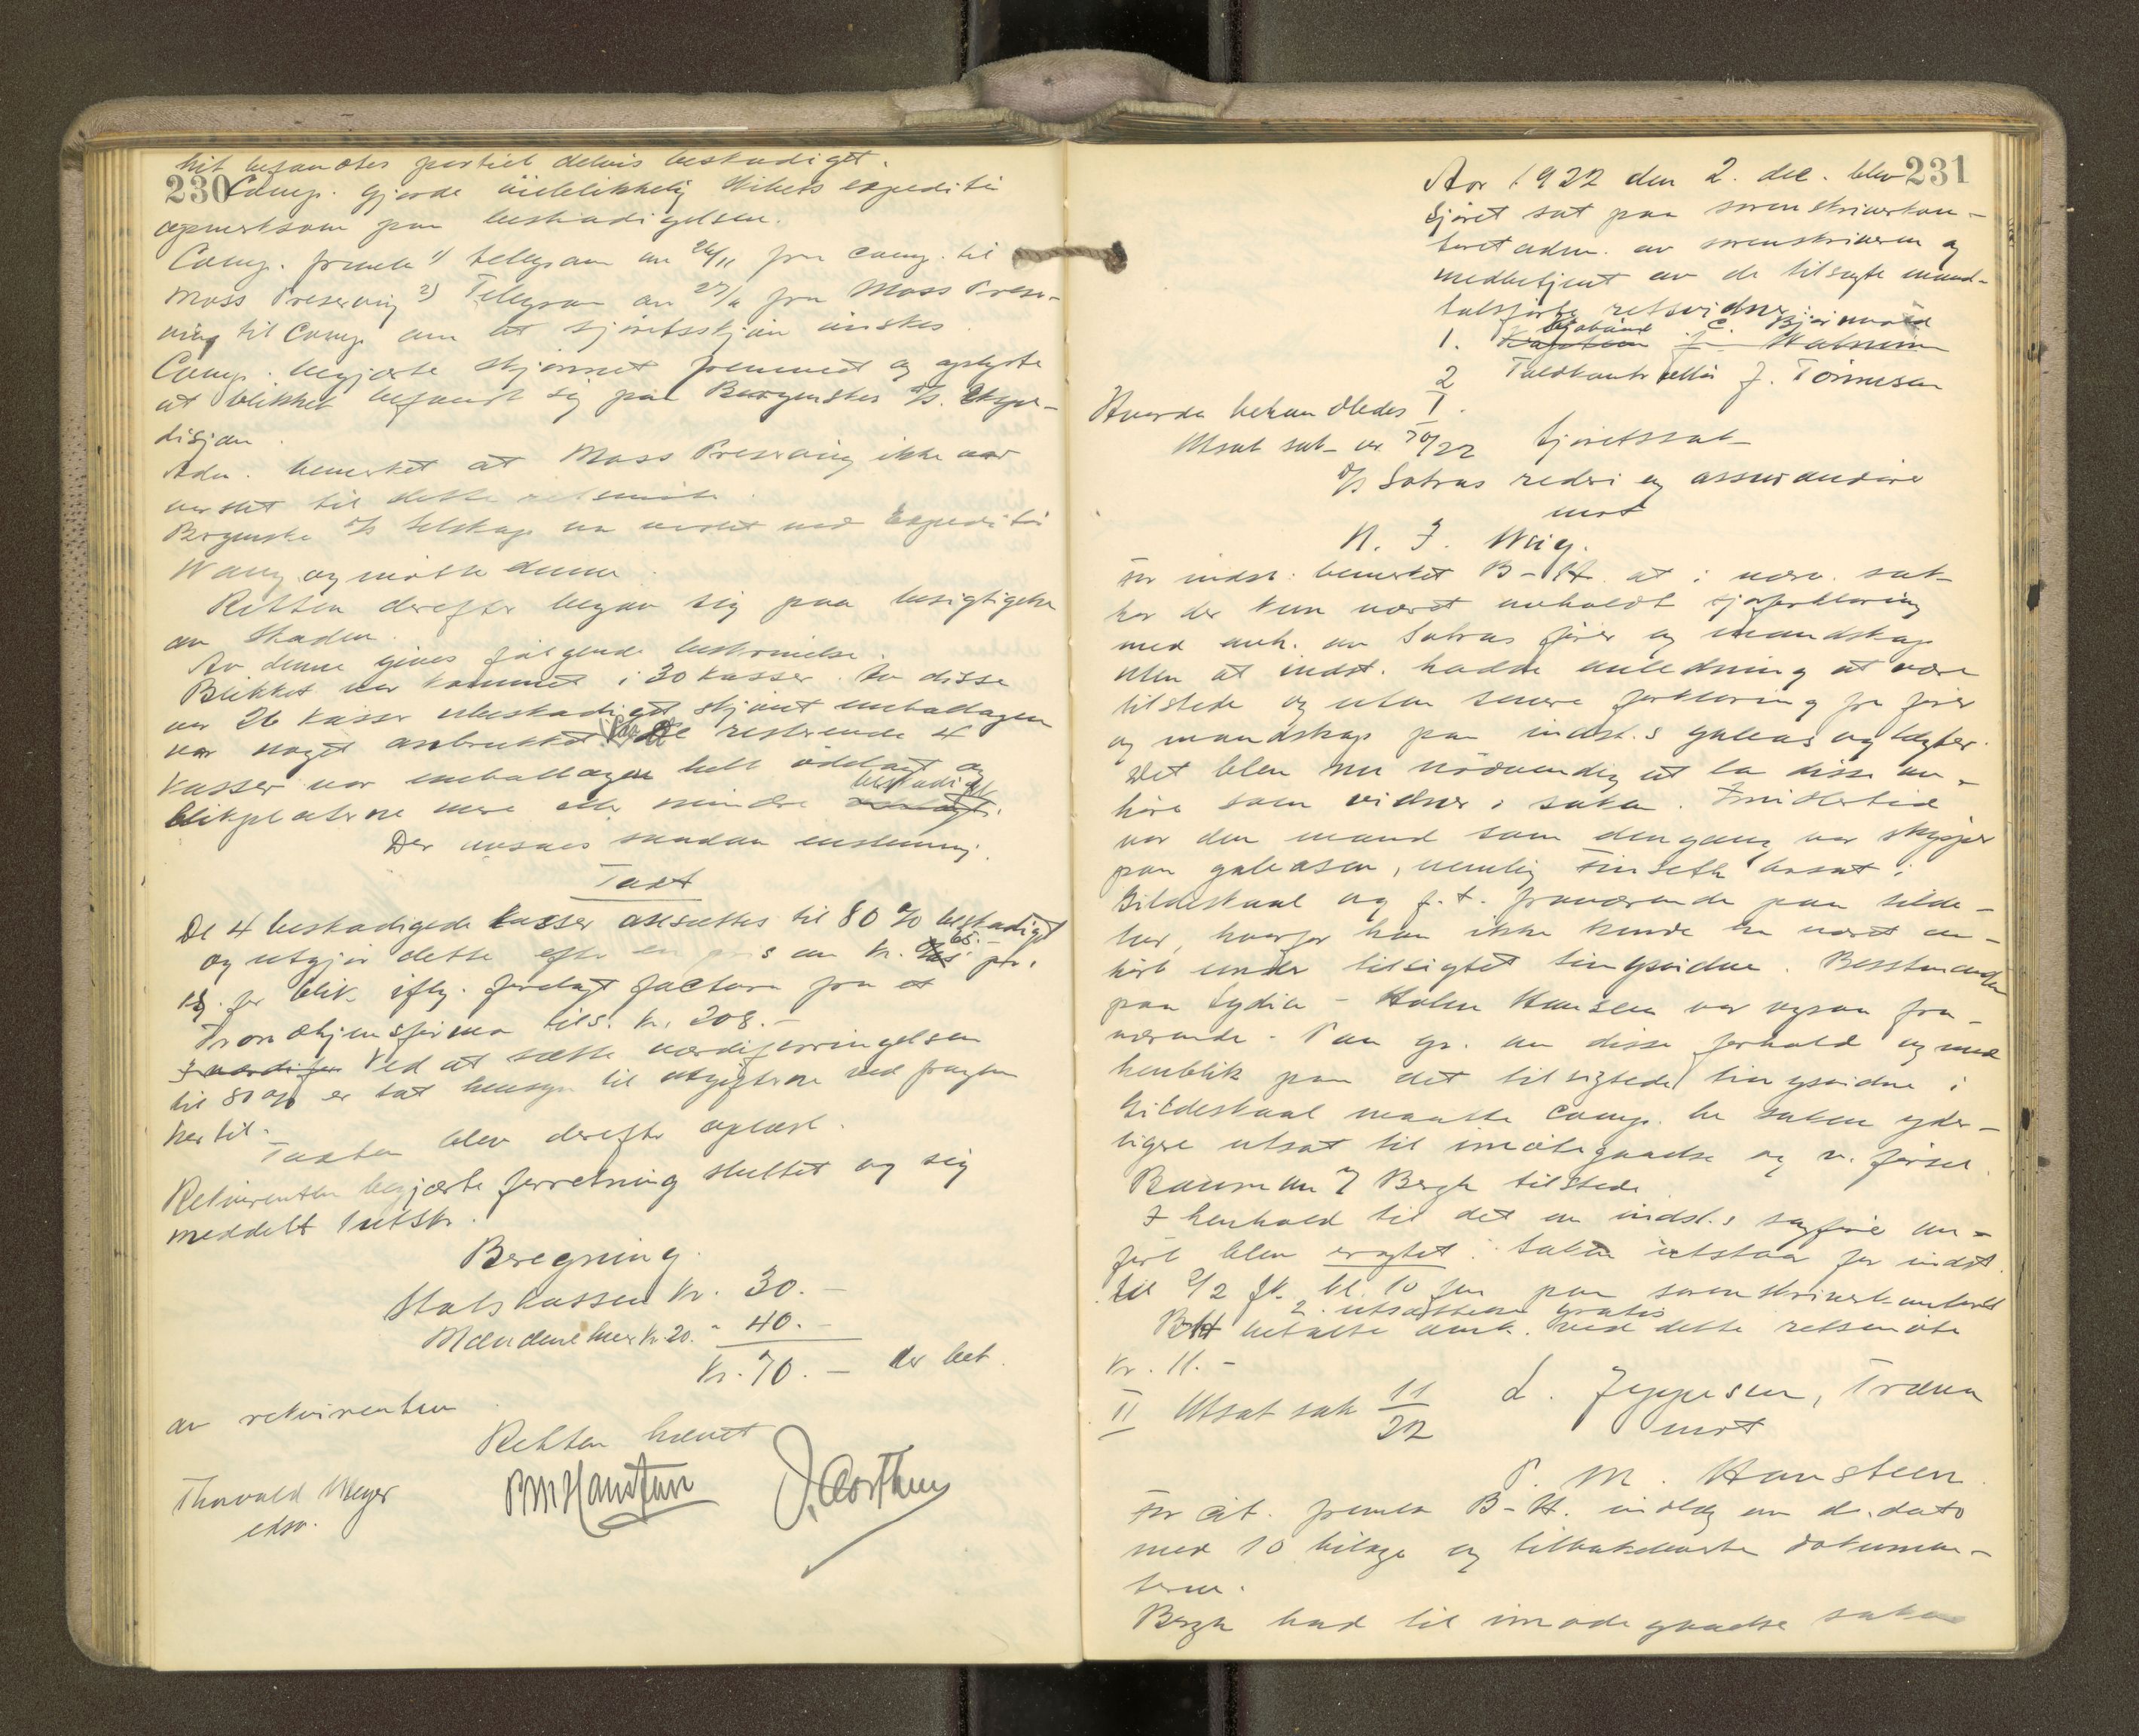 230
hit befandtes partiet delvis beskadiget.
Comp. gjorde øieblikkelig skibets expeditør
opmerksom paa beskadigelsen.
Comp. fremla 1) telegram av 26/11 fra comp. til
Moss Preserving 2) Telegram av 27/11 fra Moss Preser-
ving til Comp. om at sjøretsskjøn ønskes.
Comp. begjærte skjønnet fremmet og oplyste
at blikket befandt sig paa Bergenskes D/S. Expe-
disjon.
Adm. bemerket at Moss Preserving ikke var
varslet til dette retsmøte.
Bergenske D/S Selskap var varslet ved Expeditør
Wang og møtte denne.
Retten derefter begav sig paa besigtigelse
av skaden.
Av denne gives følgende beskrivelse.
Blikket var kommet i 30 kasser. Av disse
var 26 kasser ubeskadiget skjønt emballagen
var noget anbrukket. Paa de resterende 4
kasser var emballagen helt ødelagt og
blikplaterne mere eller mindre beskadiget.
Der avsaaes saadan enstemmig
Taxt
De 4 beskadigede kasser ansættes til 80 % beskadiget
og utgjør dette efter en pris av kr. 65.- pr.
ks. for blik iflg. fremlagt factura fra et
Trondhjemsfirma tils. kr. 208.-
Ved at sætte værdiforringelsen
til 80 % er tat hensyn til utgifterne ved fragten
hertil.
Taxten blev derefter oplæst.
Rekvirenten begjærte forretning sluttet og sig
meddelt 1 utskr.
Beregning.
Statskassen kr. 30.-
Mændene hver kr. 20. " 40.-
Kr. 70.- der bet.
av rekvirenten.
Retten hævet
Thorvald Meyer
edsv.
P M Hansteen
231
Aar 1922 den 2. dec. blev
sjøret sat paa sorenskriverkon-
toret adm. av sorenskriveren og
medbetjent av de tilsagte mand-
talsførte retsvidner:
1. C. Bjørnvold
2 Toldkontrollør J. Tønnesen
Hvorda behandledes I.
Utsat sak nr. 10/22 Sjøretssak
D/S Sotras rederi og assurandører
mot
N. J. Wiig.
For indst. bemerket B-H. at i nærv. sak
har der kun været avholdt sjøforklaring
med avh. av Sotras fører og mandskap
uten at indst. hadde anledning at være
tilstede og uten senere forklaring fra fører
og mandskap paa indst.s galeas og lægter.
Det blev nu nødvendig at la disse av-
høre som vidner i saken. Imidlertid
var den mand som dengang var skipper
paa galeasen, nemlig Finseth bosat i
Gildeskaal og f.t. fraværende paa silde-
tur, hvorfor han ikke kunde ha været av-
hørt under tilsigtet tingsvidne. Bestmanden
paa Lydia - Halvor Hansen var ogsaa fra-
værende. Paa gr. av disse forhold og med
henblik paa det tilsigtede tingsvidne i
Gildeskaal maatte comp. be saken yder-
ligere utsat til imøtegaaelse og v. førsel.
Bauman og Bergh tilstede.
I henhold til det av indst.s sagfører an-
ført blev eragtet: Saken utstaar for indst.
til 2/2 ft. kl. 10 fm paa sorenskriverkontoret
2. utsættelse gratis
B-H betalte omk. ved dette retsmøte
kr. 11.-
II Utsat sak 11/22 L. Jeppesen, Træna
mot
P. M. Hansteen.
For cit. fremla B-H. indlæg av d. dato
med 10 bilage og tilbakeleverte dokumen-
terne.
Bergh bad til imødegaaelse saken